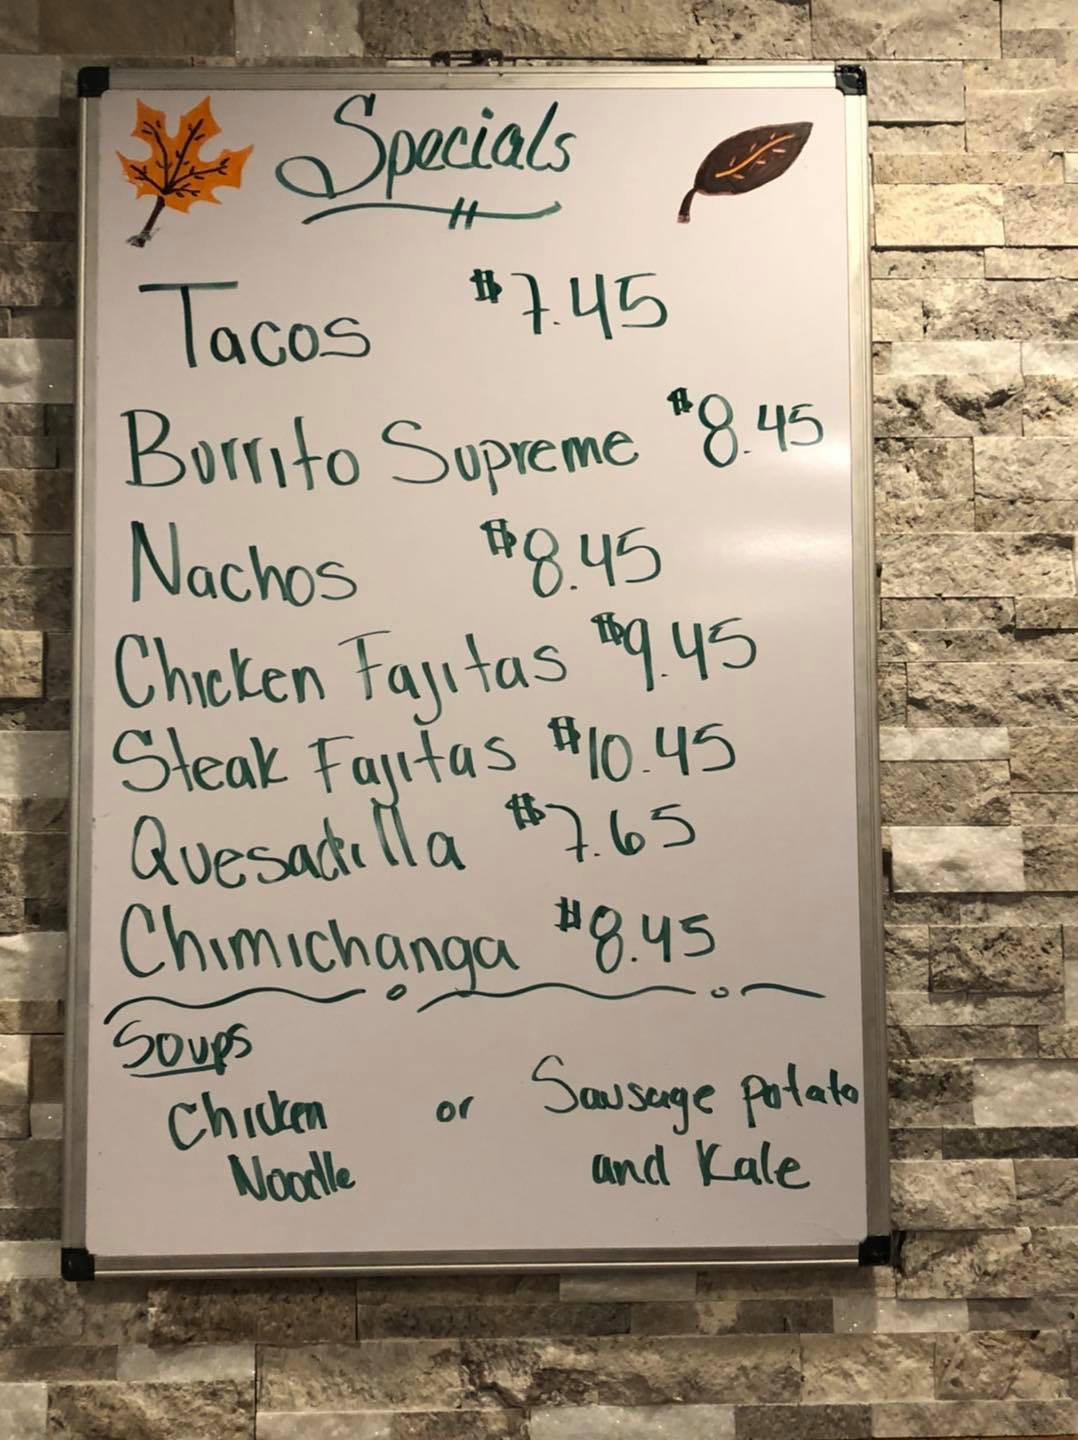 Specials
Tacos $7.45
Burrito Supreme $8.45
Nachos $8.45
Chicken Fajitas $9.45
Steak Fajitas $10.45
Quesadilla $7.65
Chimichanga $8.45
Soups
Chicken or Sausage potato
Noodle and Kale